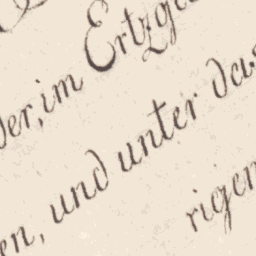 im Ertzge
en, und unter das
rigen